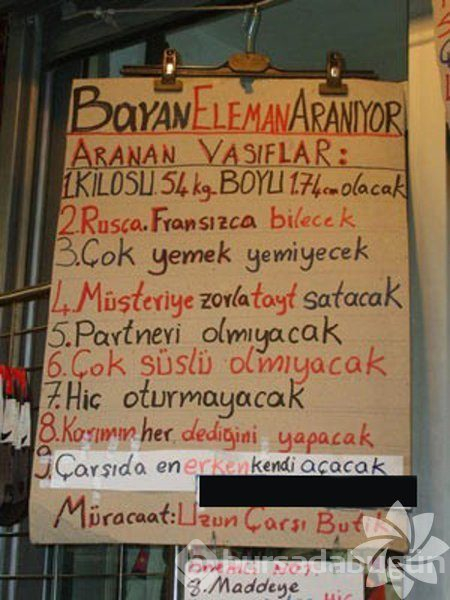 BAYAN ELEMAN ARANIYOR
ARANAN VASIFLAR:
1.KİLOSU 54 kg BOYU 1.74 cm olacak
2.Rusca.Fransızca bilecek
3.Çok yemek yemiyecek
4.Müşteriye zorla tayt satacak
5.Partneri olmıyacak
6.Çok süslü olmıyacak
7.Hiç oturmayacak
8.Karımın her dediğini yapacak
9 Çarşıda en erken kendi açacak
Müracaat: Uzun Çarşı Butik
bursadabugün
ÖNEMLİ NOT:
8. Maddeye
HİÇ